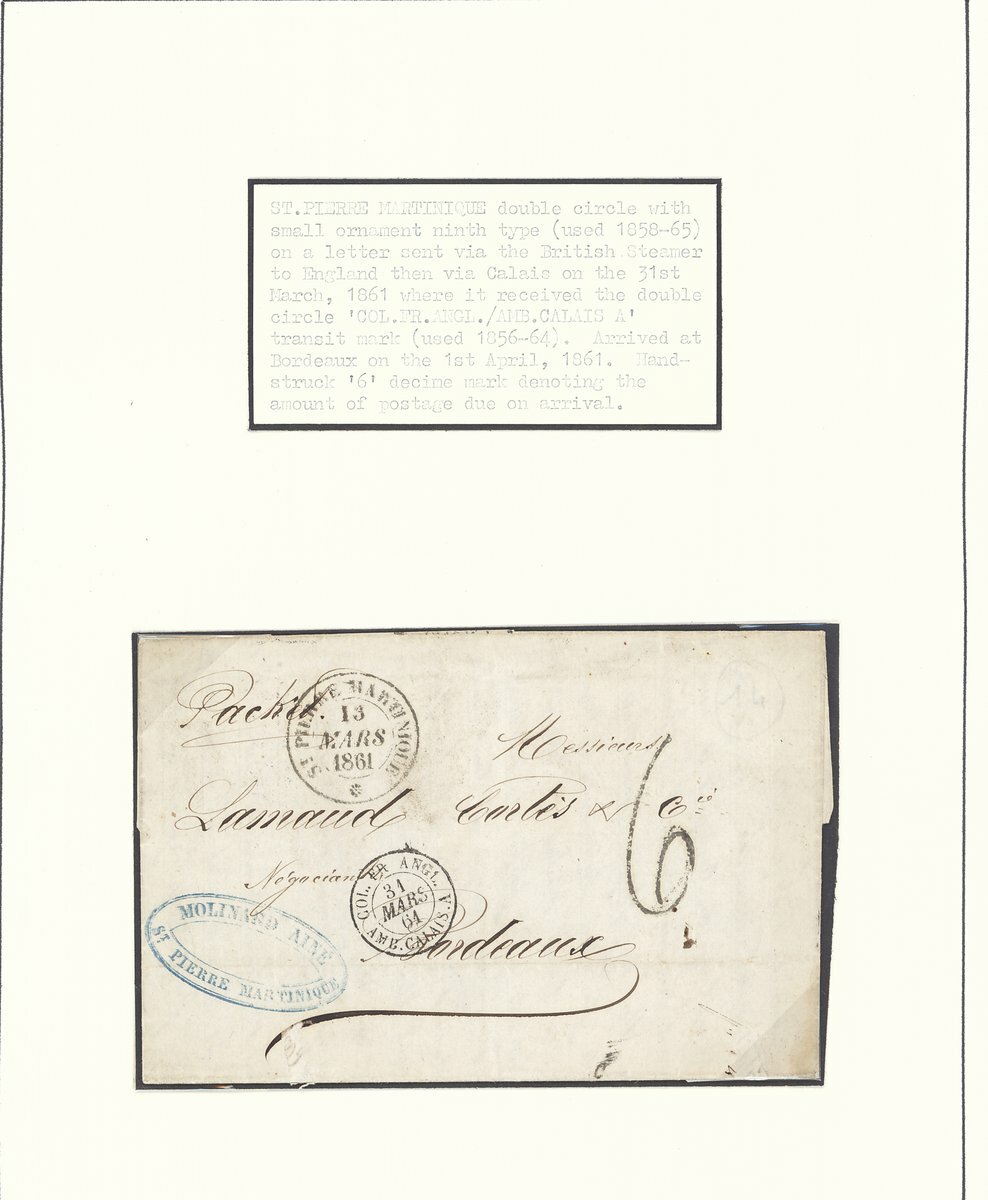 ST.PIERRE MARTINIQUE double circle with
small ornament ninth type (used 1858-65)
on a letter sent via the British Steamer
to England then via Calais on the 31st
March, 1861 where it received the double
circle 'COL.FR.ANGL./AMB.CALAIS A'
transit mark (used 1856-64). Arrived at
Bordeaux on the 1st April, 1861. Hand-
struck '6' decime mark denoting the
amount of postage due on arrival.
ST PIERRE MARTINIQUE
13
MARS
1861
Messieurs
6
Lamaud Cortès & Cie
Négociants
COL. FR. ANGL.
31
MARS
61
AMB. CALAIS A
MOLINARD AINÉ
ST PIERRE MARTINIQUE
Bordeaux